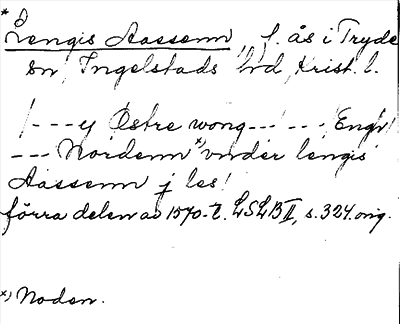 * Lengis Aassenn, f. ås i Tryde
sn, Ingelstads hd, Krist. l.
/---y Østre wong---/---/Engh/
---Nordenn *) vnder lengis
Aassenn j les/
förra delen av 1570-t. LSLB II, s. 324. orig.
*) Noden.